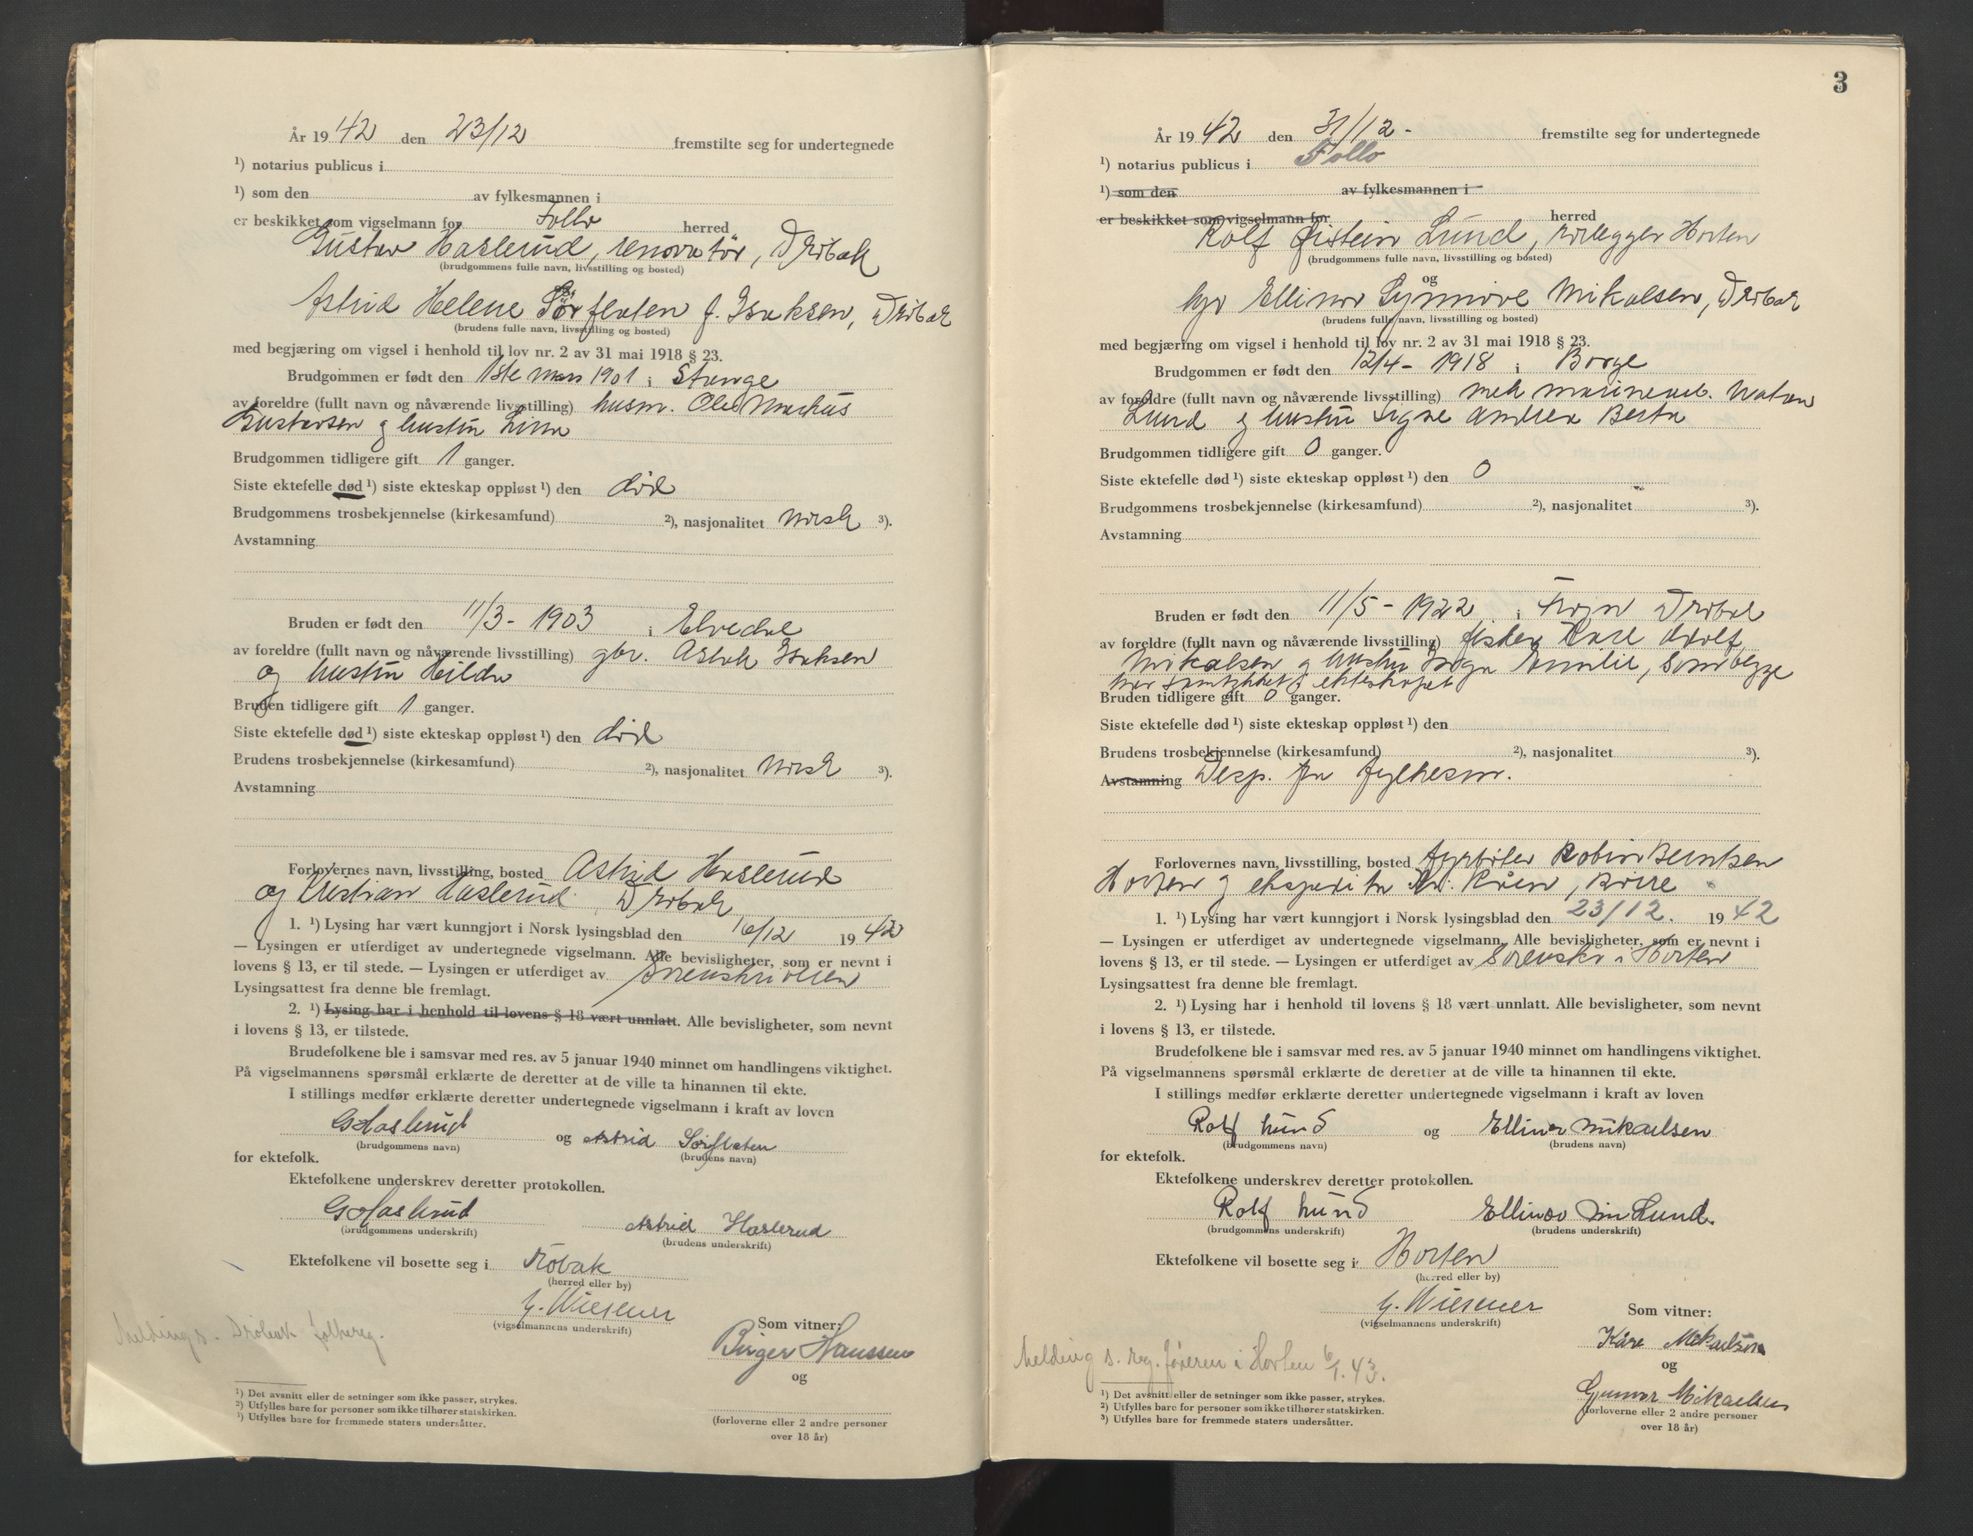 År 1942 den 23/12 fremstilte seg for undertegnede
¹) notarius publicus i
¹) som den av fylkesmannen i
er beskikket som vigselmann for Follo herred
Gustav Haslerud, renovatør, Drøbak
(brudgommens fulle navn, livsstilling og bosted)
Astrid Helene Sørflaten f. Isaksen, Drøbak
(brudens fulle navn, livsstilling og bosted)
med begjæring om vigsel i henhold til lov nr. 2 av 31 mai 1918 § 23.
Brudgommen er født den 1ste mars 1901 i Stange
av foreldre (fullt navn og nåværende livsstilling) husm. Ole Marius
Gustavsen og hustru Lina
Brudgommen tidligere gift 1 ganger.
Siste ektefelle død ¹) siste ekteskap oppløst ¹) den død
Brudgommens trosbekjennelse (kirkesamfund) ²), nasjonalitet norsk ³).
Avstamning
Bruden er født den 11/3 - 1903 i Elvedal
av foreldre (fullt navn og nåværende livsstilling) gbr. Aslak Isaksen
og hustru Hilda
Bruden tidligere gift 1 ganger.
Siste ektefelle død ¹) siste ekteskap oppløst ¹) den død
Brudens trosbekjennelse (kirkesamfund) ²), nasjonalitet norsk ³).
Avstamning
Forlovernes navn, livsstilling, bosted Astrid Haslerud
og Kristian Haslerud, Drøbak
1. ¹) Lysing har vært kunngjort i Norsk lysingsblad den 16/12 1942
— Lysingen er utferdiget av undertegnede vigselmann. Alle bevisligheter, som er nevnt i
lovens § 13, er til stede. — Lysingen er utferdiget av Sorenskriveren
Lysingsattest fra denne ble fremlagt.
2. ¹) Lysing har i henhold til lovens § 18 vært unnlatt. Alle bevisligheter, som nevnt
i lovens § 13, er tilstede.
Brudefolkene ble i samsvar med res. av 5 januar 1940 minnet om handlingens viktighet.
På vigselmannens spørsmål erklærte de deretter at de ville ta hinannen til ekte.
I stillings medfør erklærte deretter undertegnede vigselmann i kraft av loven
G Haslerud og Astrid Sørflaten
(brudgommens navn) (brudens navn)
for ektefolk.
Ektefolkene underskrev deretter protokollen.
G Haslerud Astrid Haslerud
(brudgommens underskrift) (brudens underskrift)
Ektefolkene vil bosette seg i Drøbak
(herred eller by)
G. Wiesener
(vigselmannens underskrift)
Som vitner:
Melding s. Drøbak folkereg.
Birger Hanssen
og
¹) Det avsnitt eller de setninger som ikke passer, strykes.
²) Utfylles bare for personer som ikke tilhører statskirken.
³) Utfylles bare for fremmede staters undersåtter.
(forloverne eller 2 andre personer
over 18 år)
3
År 1942 den 31/12 - fremstilte seg for undertegnede
¹) notarius publicus i Follo
¹) som den av fylkesmannen i
er beskikket som vigselmann for herred
Rolf Øistein Lund, rørlegger Horten
(brudgommens fulle navn, livsstilling og bosted)
og
Ellinor Synnøve Mikalsen, Drøbak
(brudens fulle navn, livsstilling og bosted)
med begjæring om vigsel i henhold til lov nr. 2 av 31 mai 1918 § 23.
Brudgommen er født den 12/4 - 1918 i Borge
av foreldre (fullt navn og nåværende livsstilling) mek
Lund og hustru Signe Andrea Berta
Brudgommen tidligere gift 0 ganger.
Siste ektefelle død ¹) siste ekteskap oppløst ¹) den 0
Brudgommens trosbekjennelse (kirkesamfund) ²), nasjonalitet ³).
Avstamning
Bruden er født den 11/5 - 1922 i Frogn Drøbak
av foreldre (fullt navn og nåværende livsstilling) fisker Kare Adolf
Mikalsen og hustru Emilie, som begge
har samtykket i ekteskapet
Bruden tidligere gift 0 ganger.
Siste ektefelle død ¹) siste ekteskap oppløst ¹) den
Brudens trosbekjennelse (kirkesamfund) ²), nasjonalitet ³).
Avstamning Desp. fra fylkesm.
Forlovernes navn, livsstilling, bosted fyrbøter Robin Berntsen
Horten og ekspeditør Råen, Borre
1. ¹) Lysing har vært kunngjort i Norsk lysingsblad den 23/12. 1942
— Lysingen er utferdiget av undertegnede vigselmann. Alle bevisligheter, som er nevnt i
lovens § 13, er til stede. — Lysingen er utferdiget av Sorenskr i Horten
Lysingsattest fra denne ble fremlagt.
2. ¹) Lysing har i henhold til lovens § 18 vært unnlatt. Alle bevisligheter, som nevnt
i lovens § 13, er tilstede.
Brudefolkene ble i samsvar med res. av 5 januar 1940 minnet om handlingens viktighet.
På vigselmannens spørsmål erklærte de deretter at de ville ta hinannen til ekte.
I stillings medfør erklærte deretter undertegnede vigselmann i kraft av loven
Rolf Lund og Ellinor Mikaelsen
(brudgommens navn) (brudens navn)
for ektefolk.
Ektefolkene underskrev deretter protokollen.
Rolf Lund Ellinor Lund.
(brudgommens underskrift) (brudens underskrift)
Ektefolkene vil bosette seg i Horten
(herred eller by)
G. Wiesener
(vigselmannens underskrift)
Som vitner:
Kåre Mikaelsen
og
Melding s. reg. føreren i Horten 6/1.43.
Gunvor Mikaelsen
¹) Det avsnitt eller de setninger som ikke passer, strykes.
²) Utfylles bare for personer som ikke tilhører statskirken.
³) Utfylles bare for fremmede staters undersåtter.
(forloverne eller 2 andre personer
over 18 år)